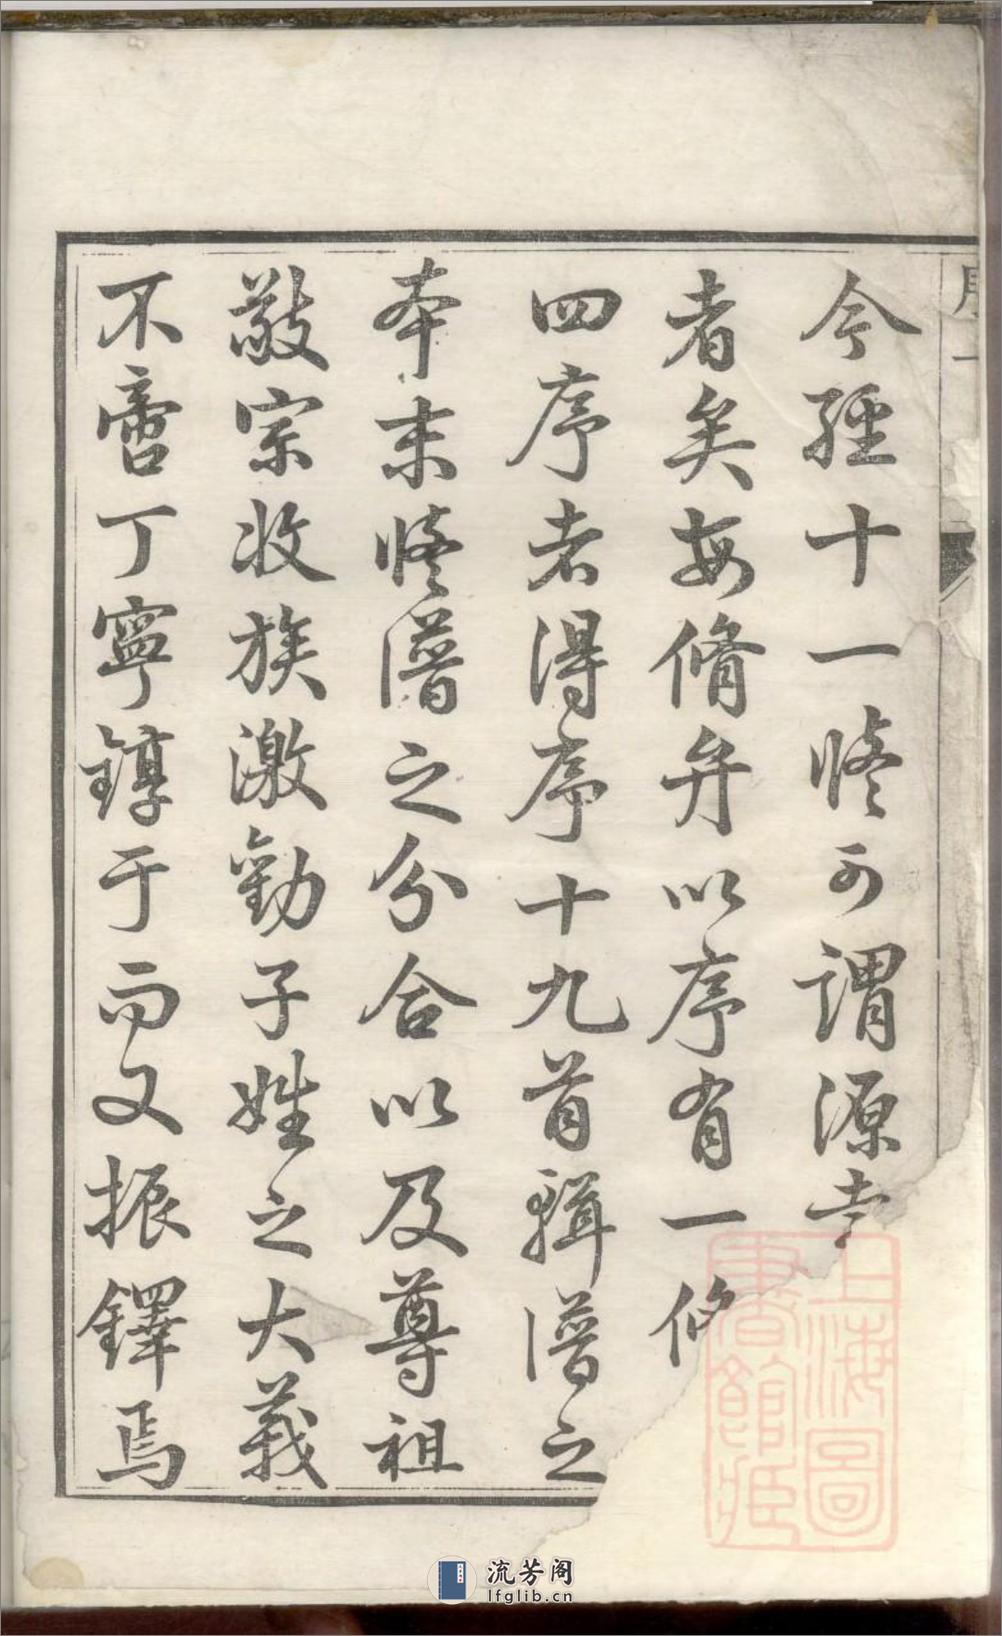 今經十一修可謂源
者矣每脩弁以序有一修
四序者得序十九首輯譜之
本末修譜之分合以及尊祖
敬宗收族激勸子姓之大義
不啻丁寧錞于而又振鐸焉
上海圖書館藏
流芳阁
lfglib.cn